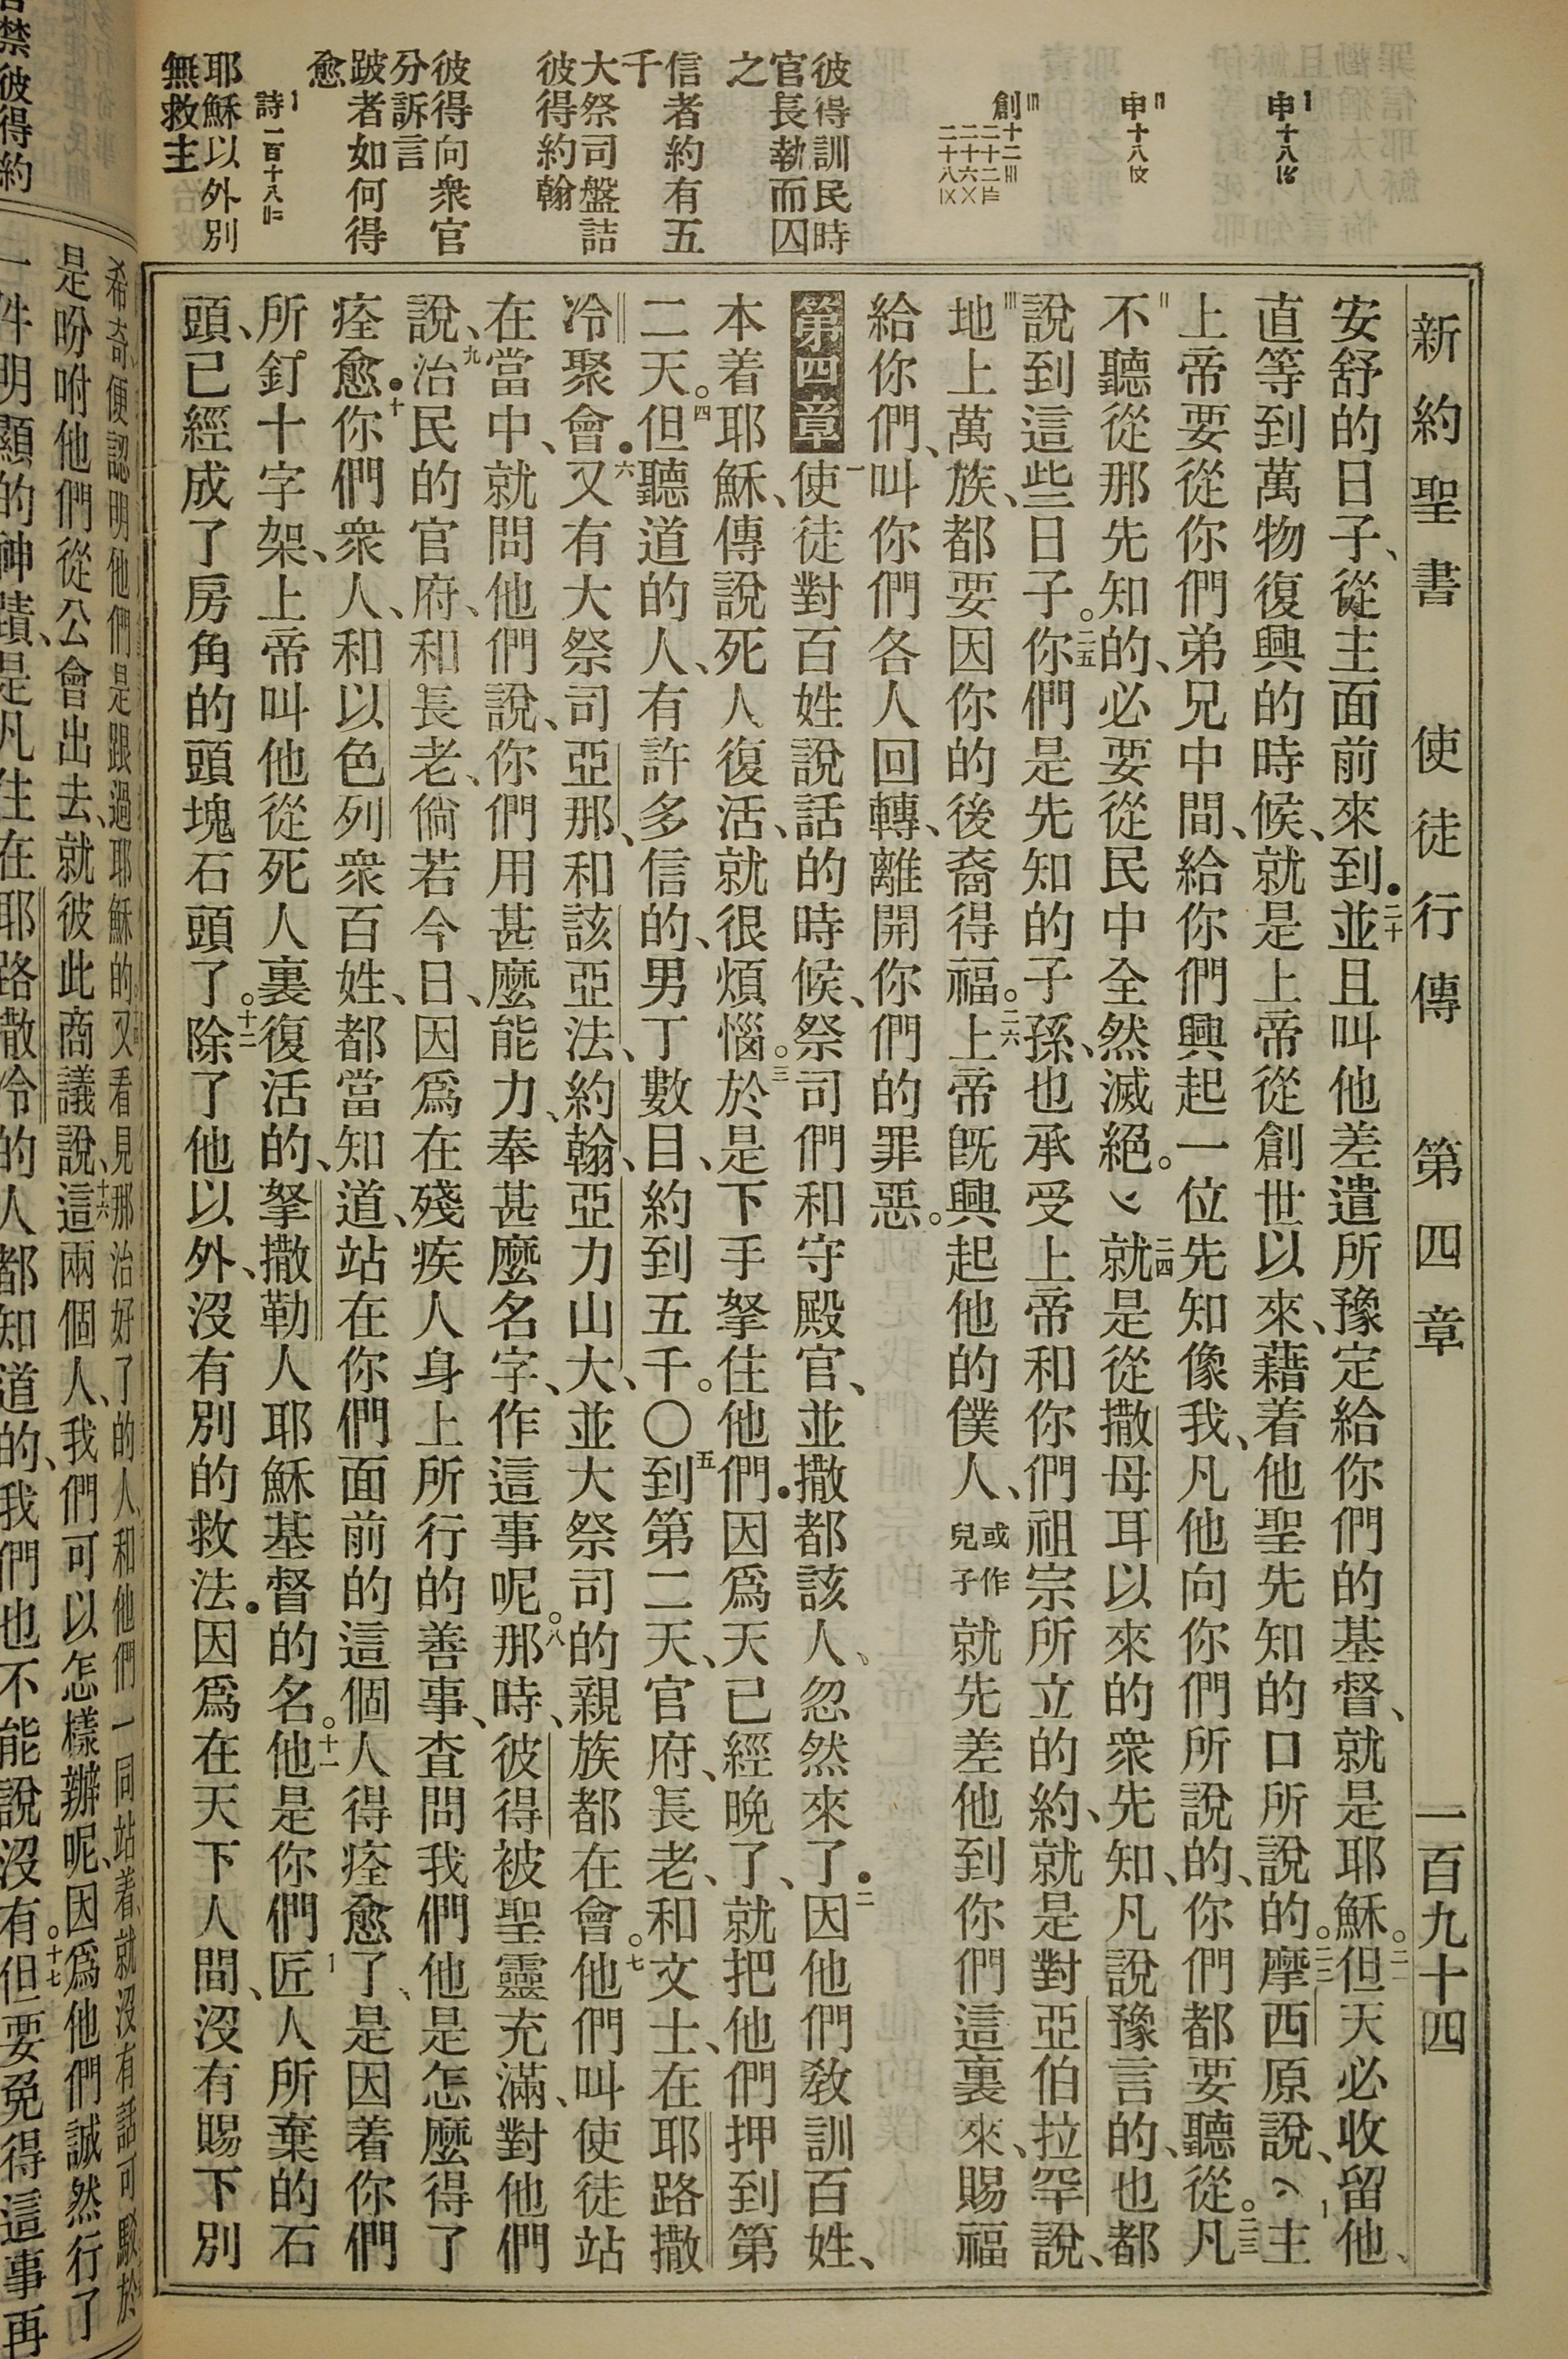 新約聖書 使徒行傳 第四章 一百九十四
申十八
申十八
創十二
二十二
二十六
二十八
彼得訓民時
官長執而囚
之
信者約有五
千
大祭司盤詰
彼得約翰
彼得向衆官
分訴言
跛者如何得
愈
詩一百十八
耶穌以外別
無救主
安舒的日子、從主面前來到●二十並且叫他差遣所豫定給你們的基督、就是耶穌。二一但天必收留他、
直等到萬物復興的時候、就是上帝從創世以來、藉着他聖先知的口所說的。二二摩西原說、主
上帝要從你們弟兄中間、給你們興起一位先知像我、凡他向你們所說的、你們都要聽從。二三凡
不聽從那先知的、必要從民中全然滅絕。二四就是從撒母耳以來的衆先知、凡說豫言的、也都
說到這些日子。二五你們是先知的子孫、也承受上帝和你們祖宗所立的約、就是對亞伯拉罕說、
地上萬族、都要因你的後裔得福。二六上帝旣興起他的僕人、或作兒子就先差他到你們這裏來、賜福
給你們、叫你們各人回轉、離開你們的罪惡。
第四章 一使徒對百姓說話的時候、祭司們和守殿官、並撒都該人、忽然來了●二因他們敎訓百姓、
本着耶穌、傳說死人復活、就很煩惱。三於是下手拏住他們●因爲天已經晚了、就把他們押到第
二天。四但聽道的人、有許多信的、男丁數目、約到五千。〇五到第二天、官府、長老、和文士、在耶路撒
冷聚會●六又有大祭司亞那、和該亞法、約翰、亞力山大、並大祭司的親族都在會。七他們叫使徒站
在當中、就問他們說、你們用甚麼能力、奉甚麼名字、作這事呢。八那時、彼得被聖靈充滿、對他們
說、九治民的官府、和長老、倘若今日、因爲在殘疾人身上所行的善事、查問我們他是怎麼得了
痊愈●十你們衆人、和以色列衆百姓、都當知道、站在你們面前的這個人得痊愈了、是因着你們
所釘十字架、上帝叫他從死人裏復活的、拏撒勒人耶穌基督的名。十一他是你們匠人所棄的石
頭、已經成了房角的頭塊石頭了。十二除了他以外、沒有別的救法●因爲在天下人間、沒有賜下別
禁彼得約
希奇、便認明他們是跟過耶穌的、又看見那治好了的人、和他們一同站着、就沒有話可駁、於
是吩咐他們從公會出去、就彼此商議說、十六這兩個人、我們可以怎樣辦呢、因爲他們誠然行了
一件明顯的神蹟、是凡住在耶路撒冷的人都知道的、我們也不能說沒有。十七但要免得這事再